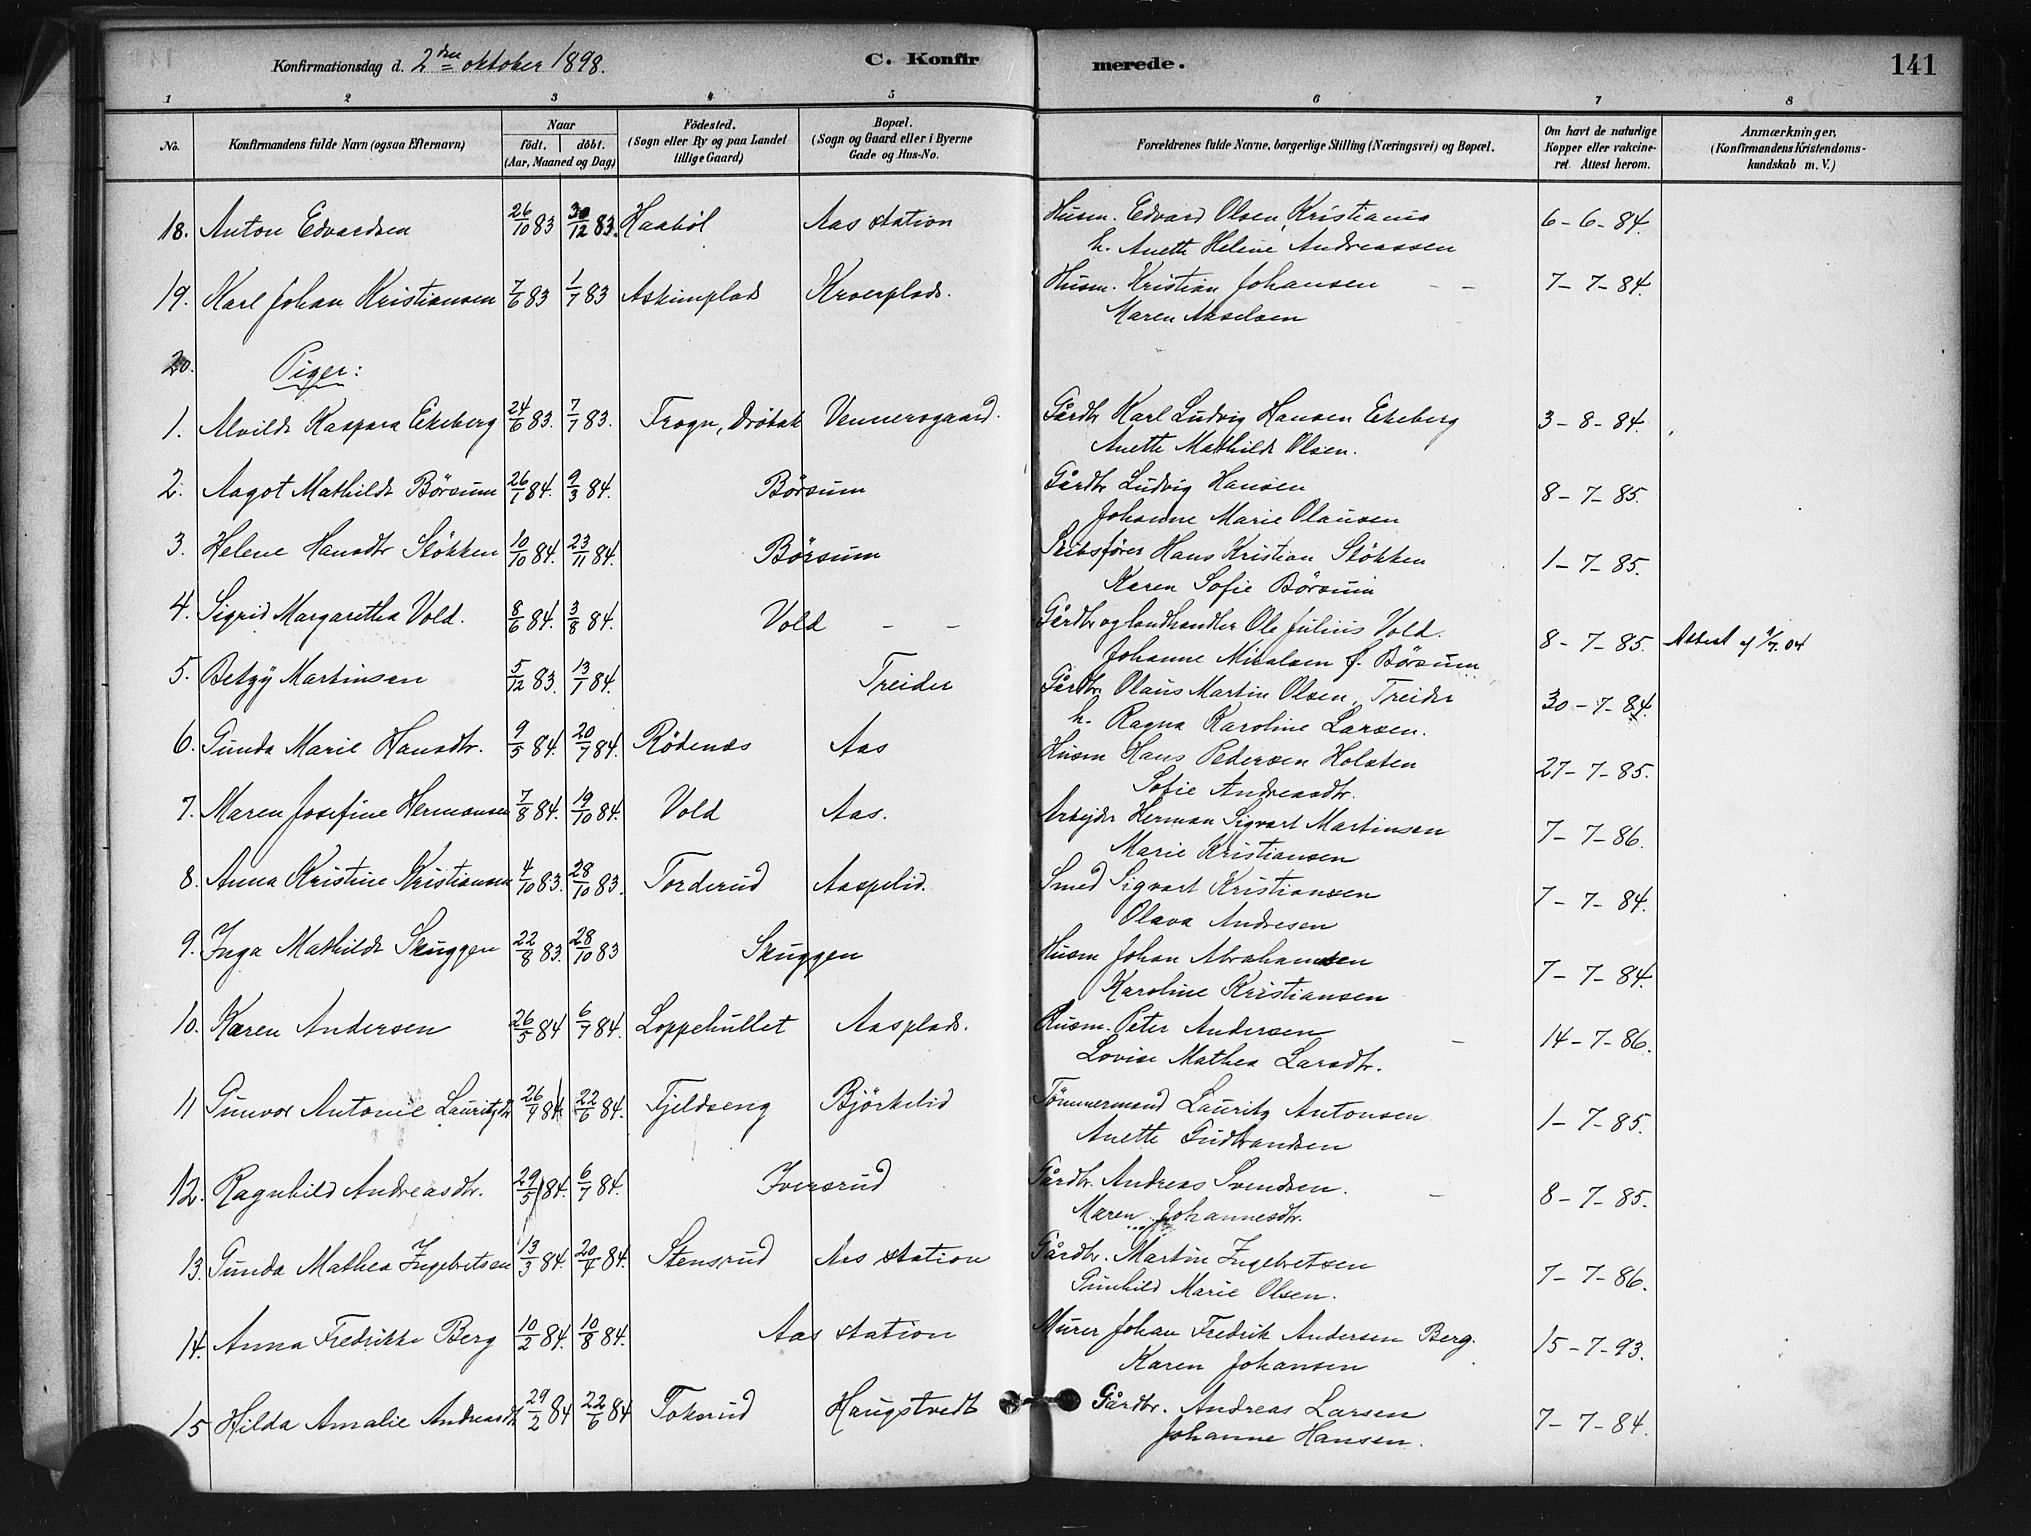 Konfirmationsdag d. 2den oktober 1898. C. Konfirmerede. 141
1 2 3 4 5 6 7 8
No. Konfirmandens fulde Navn (ogsaa Efternavn) Naar födt. döbt. (Aar, Maaned og Dag) Födested. (Sogn eller By og paa Landet tillige Gaard) Bopæl. (Sogn og Gaard eller i Byerne Gade og Hus-No. Forældrenes fulde Navne, borgerlige Stilling (Næringsvei) og Bopæl. Om havt de naturlige Kopper eller vakcineret. Attest herom. Anmærkninger, (Konfirmandens Kristendomskundskab m. V.)
18. Anton Edvardsen 26/10 83 30/12 83. Haabøl Aas station Husm. Edvard Olsen, Kristiania 6-6-84.
h. Anette Helene Andreassen
19. Karl Johan Kristiansen 7/6 83 1/7 83 Askimplads Kroerplads. Husm. Kristian Johansen 7-7-84.
Maren Akselsen
20. Piger:
1. Alvilde Kaspara Ekeberg 24/6 83. 7/7 83. Frogn, Dröbak Vennersgaard. Gårdbr Karl Ludvig Hansen Ekeberg 3-8-84.
Anette Mathilde Olsen.
2. Aagot Mathilde Börsum 26/1 84. 9/3 84. Börsum Gårdbr Ludvig Hansen 8-7-85.
Johanne Marie Olausen
3. Helene Hansdtr Stökken 10/10 84. 23/11 84. Börsum Skibsförer Hans Kristian Stökken 1-7-85.
Karen Sofie Börsum
4. Sigrid Margaretha Vold. 8/6 84. 3/8 84. Vold - - Gårdbr og landhandler Ole Julius Vold. 8-7-85. Attest
Johanne Nicolsen f. Börsum
5. Betzy Martinsen 5/12 83. 13/1 84. Treider Gårdbr. Olaus Martin Olsen, Treider 30-7-84.
h. Ragna Karoline Larsen.
6. Gunda Marie Hansdtr. 9/5 84. 20/7 84. Rödenes Aas Husm Hans Pedersen Holsten 27-7-85.
Sofie Andreasdtr.
7. Maren Josefine Hermansen 7/8 84. 19/10 84. Vold Aas. Arbejder Herman Sigvart Martinsen 7-7-86.
Marie Kristiansen
8. Anna Kristine Kristiansen 4/10 83. 28/10 83. Torderud Aaspelid. Smed Sigvart Kristiansen 7-7-84.
Olava Andresen
9. Inga Mathilde Skuggen 22/8 83. 28/10 83 Skuggen Husm Johan Abrahamsen 7-7-84.
Karoline Kristiansen
10. Karen Andersen 26/5 84 6/7 84. Loppehullet Aasplads. Husm. Peter Andersen 14-7-86.
Lovise Mathea Larsdtr.
11 Gunvor Antonie Lauritzdtr 26/4 84. 22/6 84. Fjeldseng Björkelid Tömmermand Lauritz Antonsen 1-7-85.
Anette Gudbrandsen
12. Ragnhild Andreasdtr. 29/5 84. 6/7 84. Iversrud Gårdbr. Andreas Svendsen. 8-7-85.
Maren Johannesdtr.
13. Gunda Mathea Ingebretsen 13/3 84. 20/4 84. Stensrud Aas station Gårdbr. Martin Ingebretsen 7-7-86.
Gunhild Marie Olsen.
14. Anna Fredrikke Berg 10/2 84. 10/8 84. Aas station Murer Johan Fredrik Andersen Berg. 15-7-93.
Karen Johansen
15 Hilda Amalie Andreasdtr 29/2 84 22/6 84 Tokerud Haugstvedt Gårdbr. Andreas Larsen 7-7-84.
Johanne Hansen.